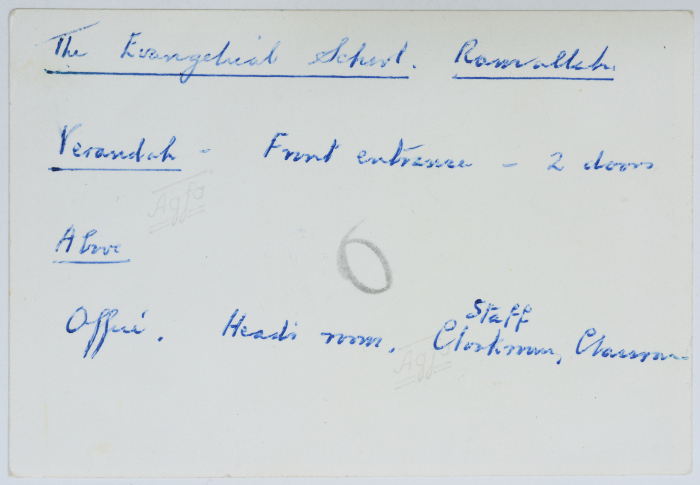 The Evangelical School. Ramallah.
Verandah - Front entrance - 2 doors
Agfa
Above
6
Staff
Office. Head's room, Cloakroom, Classroom
Agfa